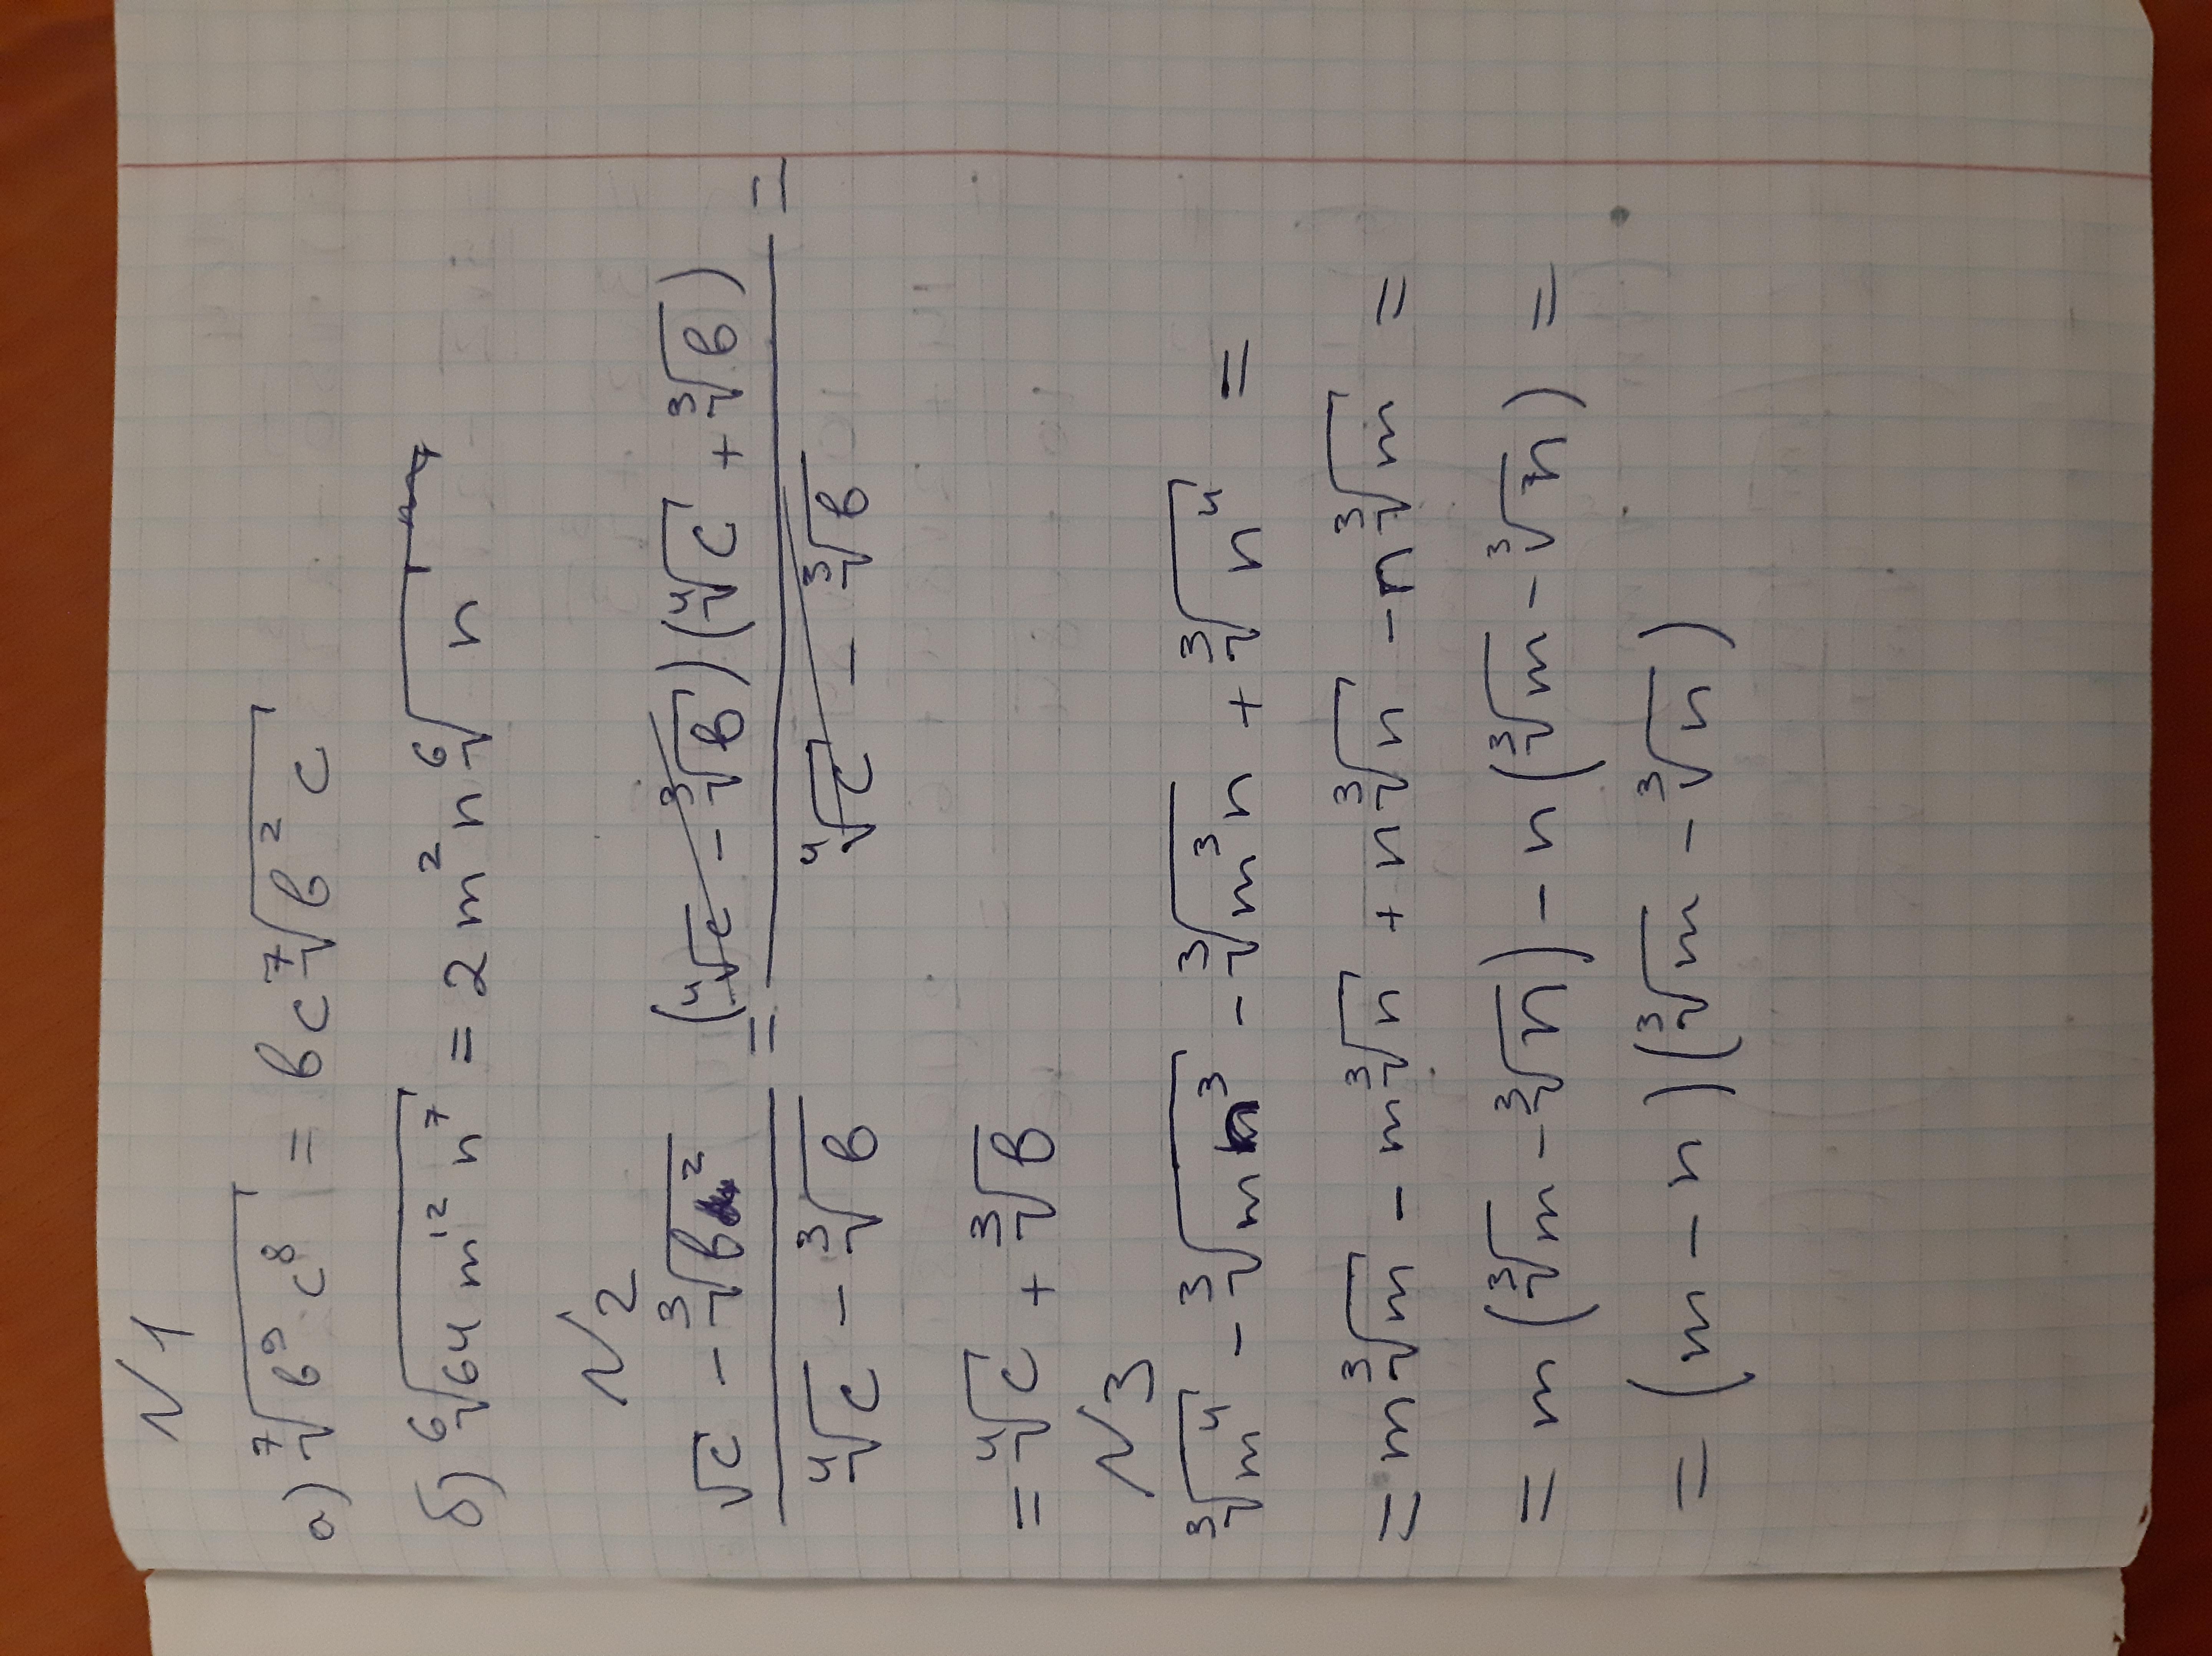 N 1
а) ⁷√(в⁹c⁸) = вc ⁷√(в²c)
б) ⁶√(64m¹²n⁷) = 2m²n ⁶√n
N 2
(√c - ³√(в²)) / (⁴√c - ³√в) = ((⁴√c - ³√в)(⁴√c + ³√в)) / (⁴√c - ³√в) =
= ⁴√c + ³√в
N 3
³√(m⁴) - ³√(mn³) - ³√(m³n) + ³√(n⁴) =
= m ³√m - m ³√n + n ³√n - n ³√m =
= m (³√m - ³√n) - n (³√m - ³√n) =
= (m - n) (³√m - ³√n)